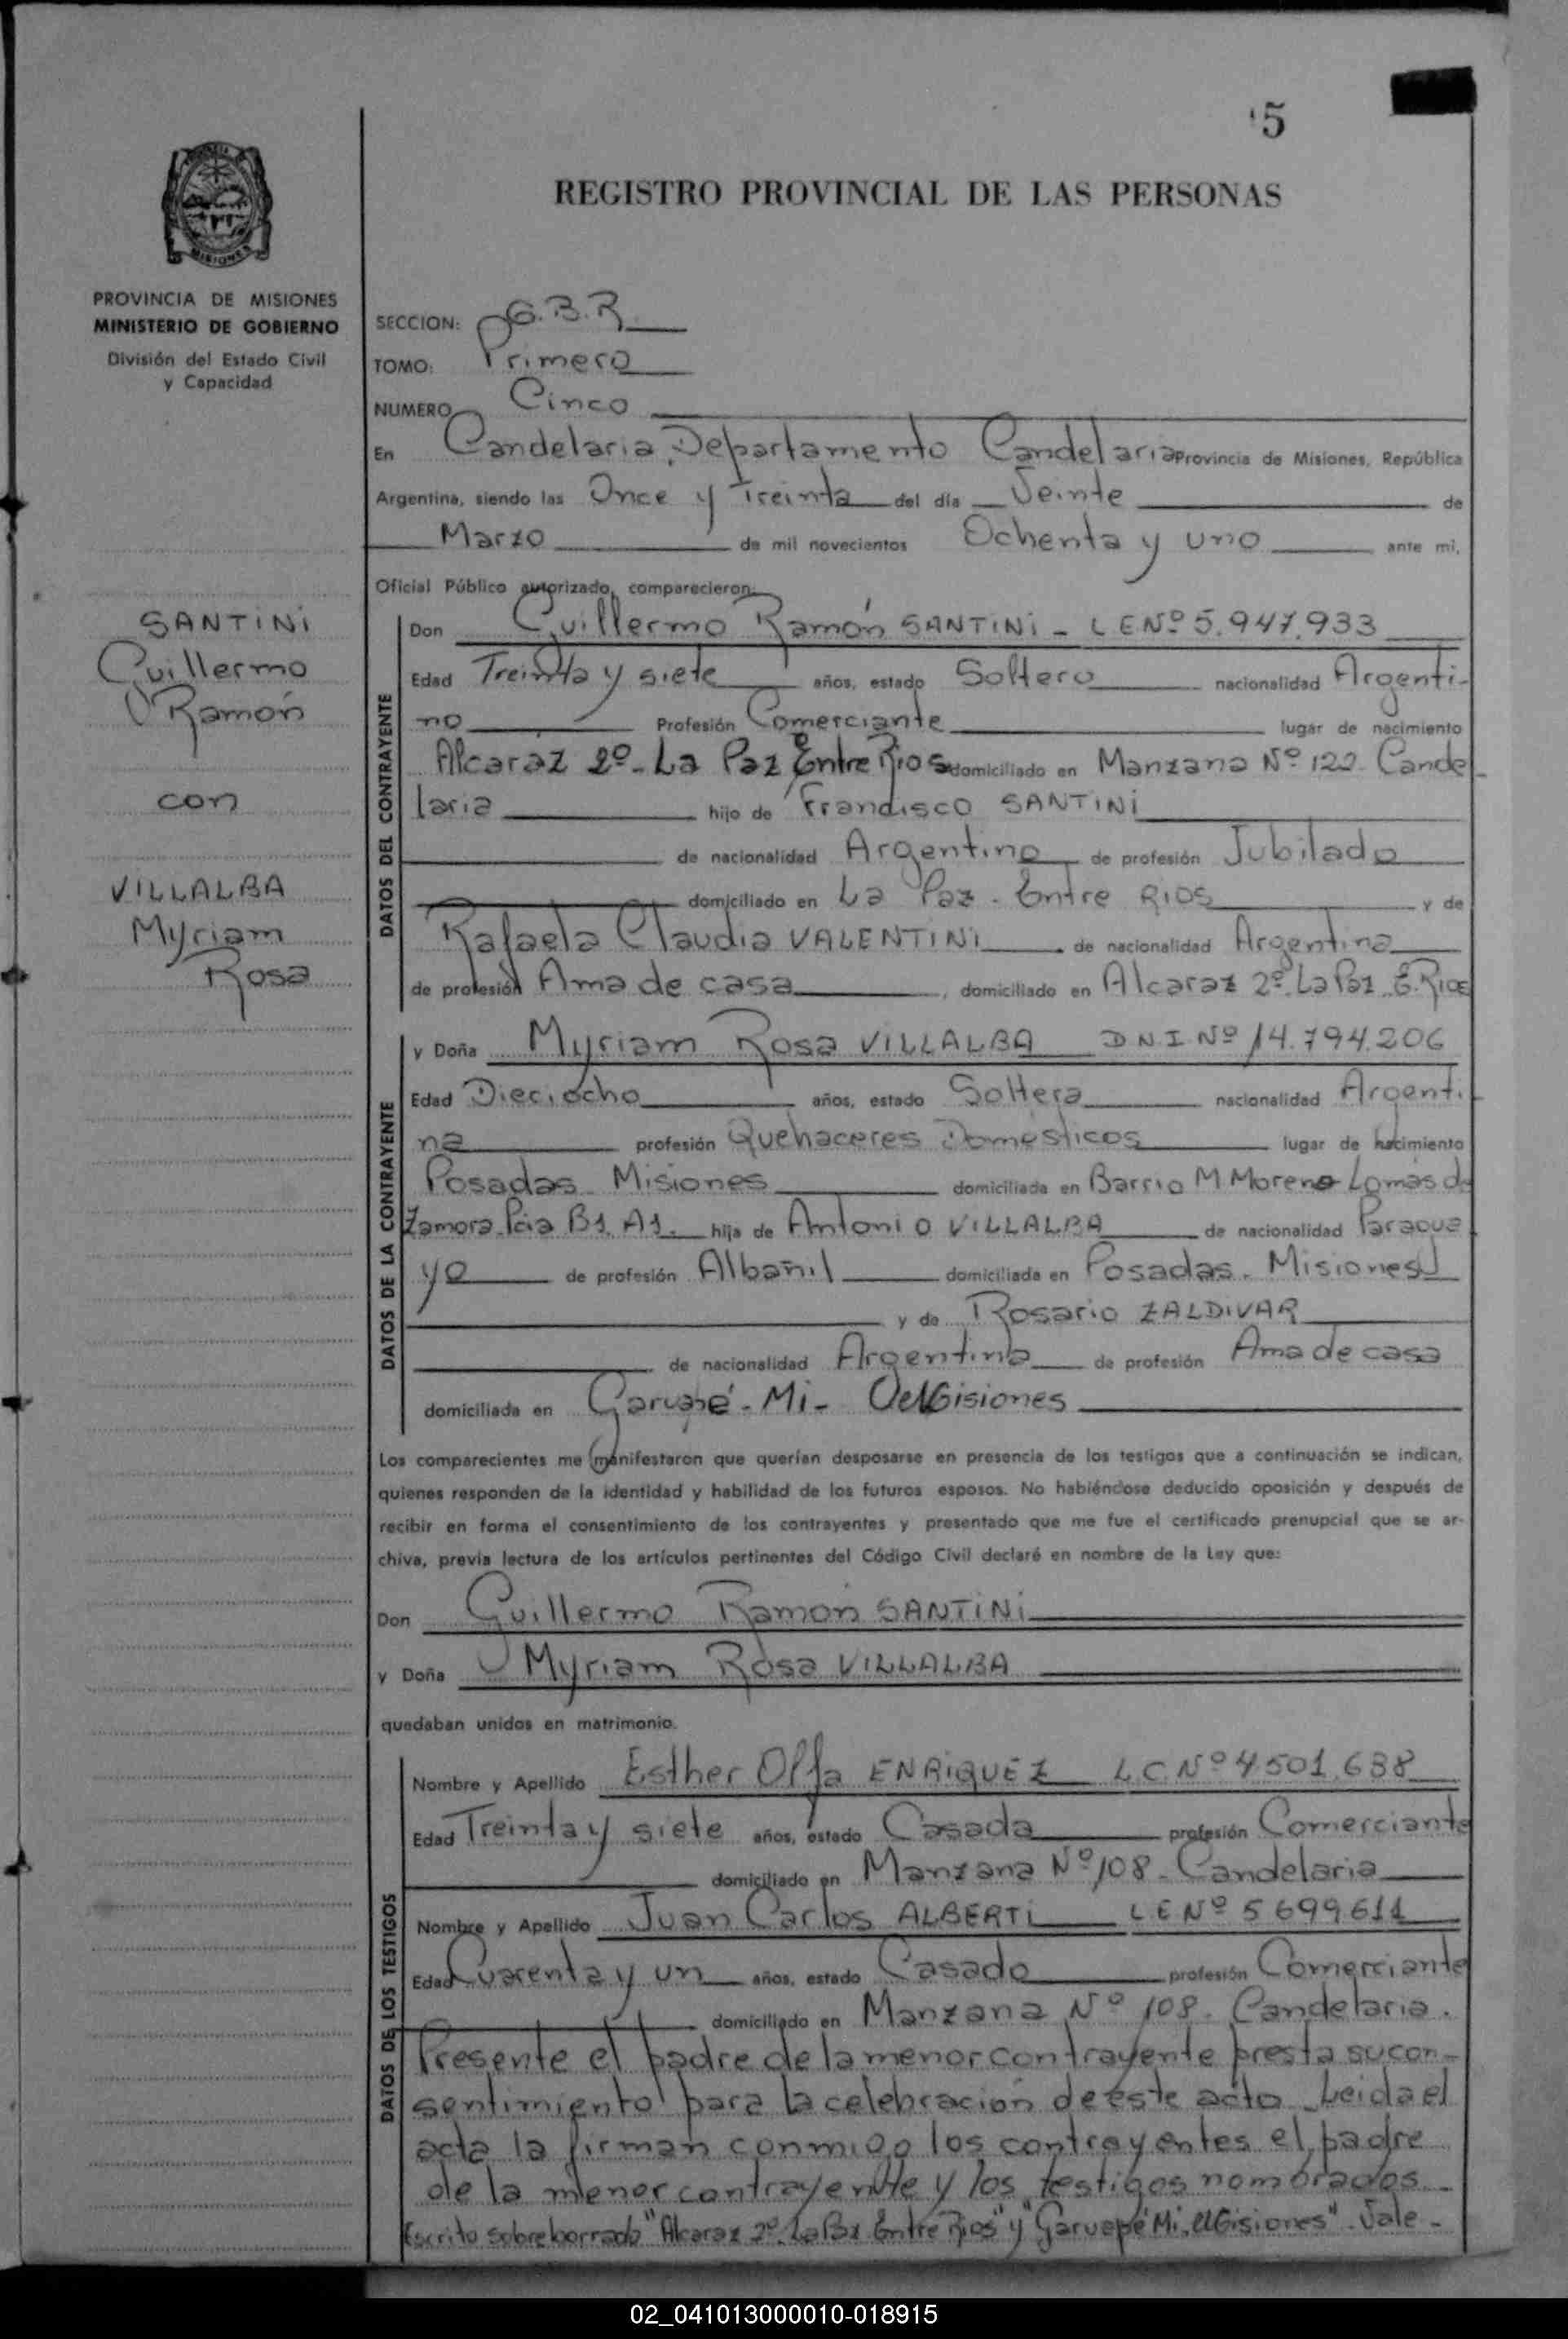 5
REGISTRO PROVINCIAL DE LAS PERSONAS
MISIONES
PROVINCIA DE MISIONES
MINISTERIO DE GOBIERNO
División del Estado Civil
y Capacidad
SANTINI
Guillermo
Ramón
con
VILLALBA
Myriam
Rosa
SECCION: G.B.R
TOMO: Primero
NUMERO Cinco
En Candelaria, Departamento Candelaria Provincia de Misiones, República
Argentina, siendo las Once y Treinta del día Veinte de
Marzo de mil novecientos Ochenta y uno ante mi,
Oficial Público autorizado, comparecieron:
DATOS DEL CONTRAYENTE
Don Guillermo Ramón SANTINI - L E Nº 5.947.933
Edad Treinta y siete años, estado Soltero nacionalidad Argenti-
no Profesión Comerciante lugar de nacimiento
Alcaráz 2º - La Paz Entre Rios domiciliado en Manzana Nº 122 Cande-
laria hijo de Francisco SANTINI
de nacionalidad Argentino de profesión Jubilado
domiciliado en La Paz - Entre Rios y de
Rafaela Claudia VALENTINI de nacionalidad Argentina
de profesión Ama de casa, domiciliado en Alcaraz 2º. La Paz E. Rios
DATOS DE LA CONTRAYENTE
y Doña Myriam Rosa VILLALBA D N I Nº 14.794.206
Edad Dieciocho años, estado Soltera nacionalidad Argenti-
na profesión Quehaceres Domésticos lugar de nacimiento
Posadas - Misiones domiciliada en Barrio M Moreno Lomas de
Zamora. Pcia Bs. As. hija de Antonio VILLALBA de nacionalidad Paragua
yo de profesión Albañil domiciliada en Posadas. Misiones
y de Rosario ZALDIVAR
de nacionalidad Argentina de profesión Ama de casa
domiciliada en Garuapé - Mi-
Los comparecientes me manifestaron que querían desposarse en presencia de los testigos que a continuación se indican,
quienes responden de la identidad y habilidad de los futuros esposos. No habiéndose deducido oposición y después de
recibir en forma el consentimiento de los contrayentes y presentado que me fue el certificado prenupcial que se ar-
chiva, previa lectura de los artículos pertinentes del Código Civil declaré en nombre de la Ley que:
Don Guillermo Ramón SANTINI
y Doña Myriam Rosa VILLALBA
quedaban unidos en matrimonio.
DATOS DE LOS TESTIGOS
Nombre y Apellido Esther Olfa ENRIQUEZ L C Nº 4.501.638
Edad Treinta y siete años, estado Casada profesión Comerciante
domiciliado en Manzana Nº 108 - Candelaria
Nombre y Apellido Juan Carlos ALBERTI L E Nº 5 699611
Edad Cuarenta y un años, estado Casado profesión Comerciante
domiciliado en Manzana Nº 108. Candelaria.
Presente el padre de la menor contrayente presta su con-
sentimiento para la celebración de este acto. Leida el
acta la firman conmigo los contrayentes el padre
de la menor contrayente y los testigos nombrados.
Escrito sobreborrado "Alcaraz 2º. La Paz. Entre Rios" y "Garuapé Mi. Vale -
02_041013000010-018915